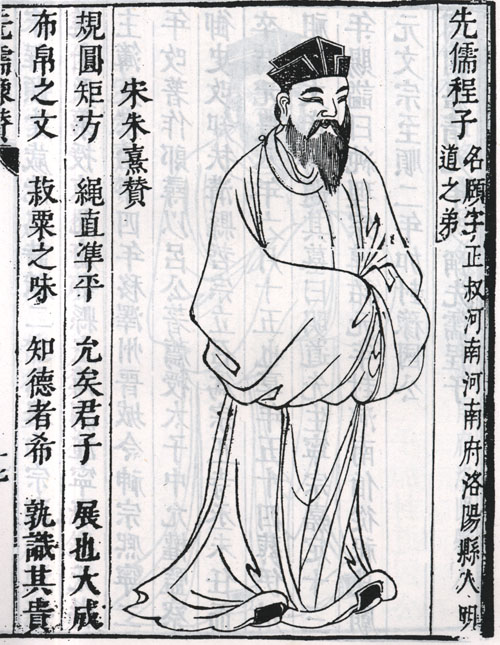 先儒程子
名頤字正叔河南河南府洛陽縣人明
道之弟
宋朱熹贊
規圓矩方　繩直準平　允矣君子　展也大成
布帛之文　菽粟之味　知德者希　孰識其貴